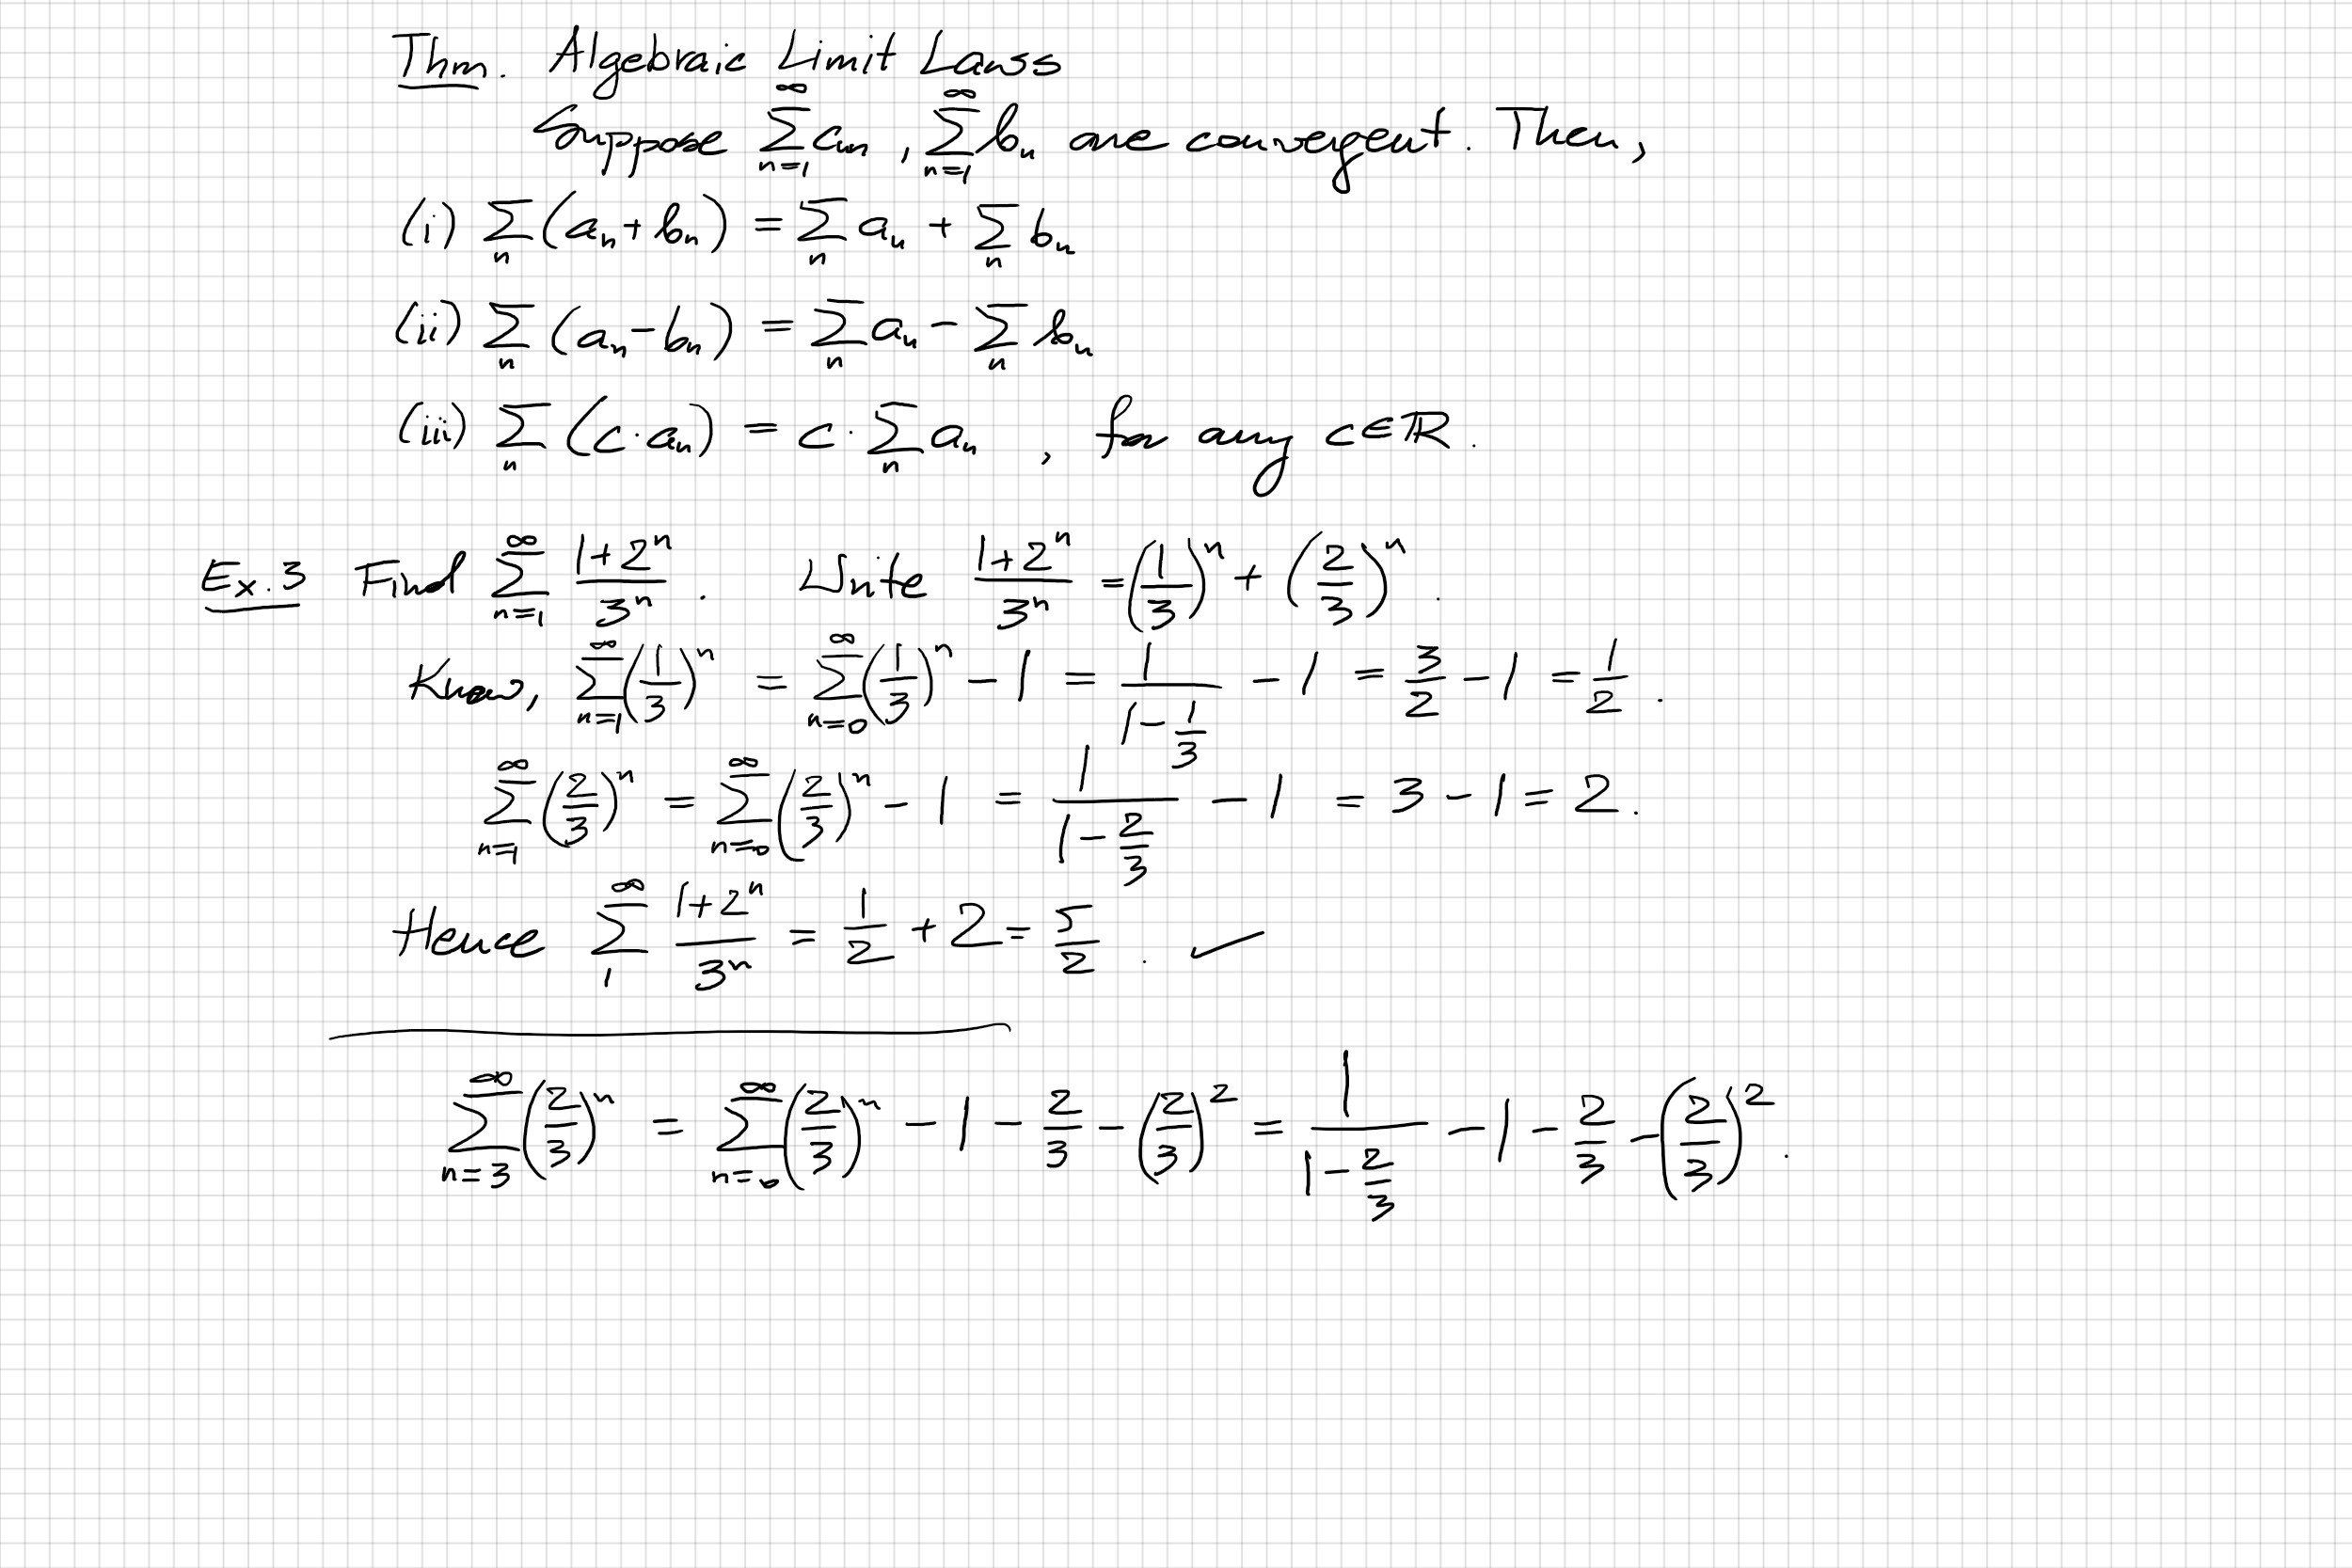 Thm. Algebraic Limit Laws
Suppose \sum_{n=1}^{\infty} a_n , \sum_{n=1}^{\infty} b_n are convergent. Then,
(i) \sum_n (a_n + b_n) = \sum_n a_n + \sum_n b_n
(ii) \sum_n (a_n - b_n) = \sum_n a_n - \sum_n b_n
(iii) \sum_n (c \cdot a_n) = c \cdot \sum_n a_n , for any c \in \mathbb{R}.
Ex. 3 Find \sum_{n=1}^{\infty} \frac{1+2^n}{3^n}. Write \frac{1+2^n}{3^n} = \left(\frac{1}{3}\right)^n + \left(\frac{2}{3}\right)^n.
Know, \sum_{n=1}^{\infty} \left(\frac{1}{3}\right)^n = \sum_{n=0}^{\infty} \left(\frac{1}{3}\right)^n - 1 = \frac{1}{1-\frac{1}{3}} - 1 = \frac{3}{2} - 1 = \frac{1}{2}.
\sum_{n=1}^{\infty} \left(\frac{2}{3}\right)^n = \sum_{n=0}^{\infty} \left(\frac{2}{3}\right)^n - 1 = \frac{1}{1-\frac{2}{3}} - 1 = 3 - 1 = 2.
Hence \sum_{1}^{\infty} \frac{1+2^n}{3^n} = \frac{1}{2} + 2 = \frac{5}{2}. ✓
\sum_{n=3}^{\infty} \left(\frac{2}{3}\right)^n = \sum_{n=0}^{\infty} \left(\frac{2}{3}\right)^n - 1 - \frac{2}{3} - \left(\frac{2}{3}\right)^2 = \frac{1}{1-\frac{2}{3}} - 1 - \frac{2}{3} - \left(\frac{2}{3}\right)^2.